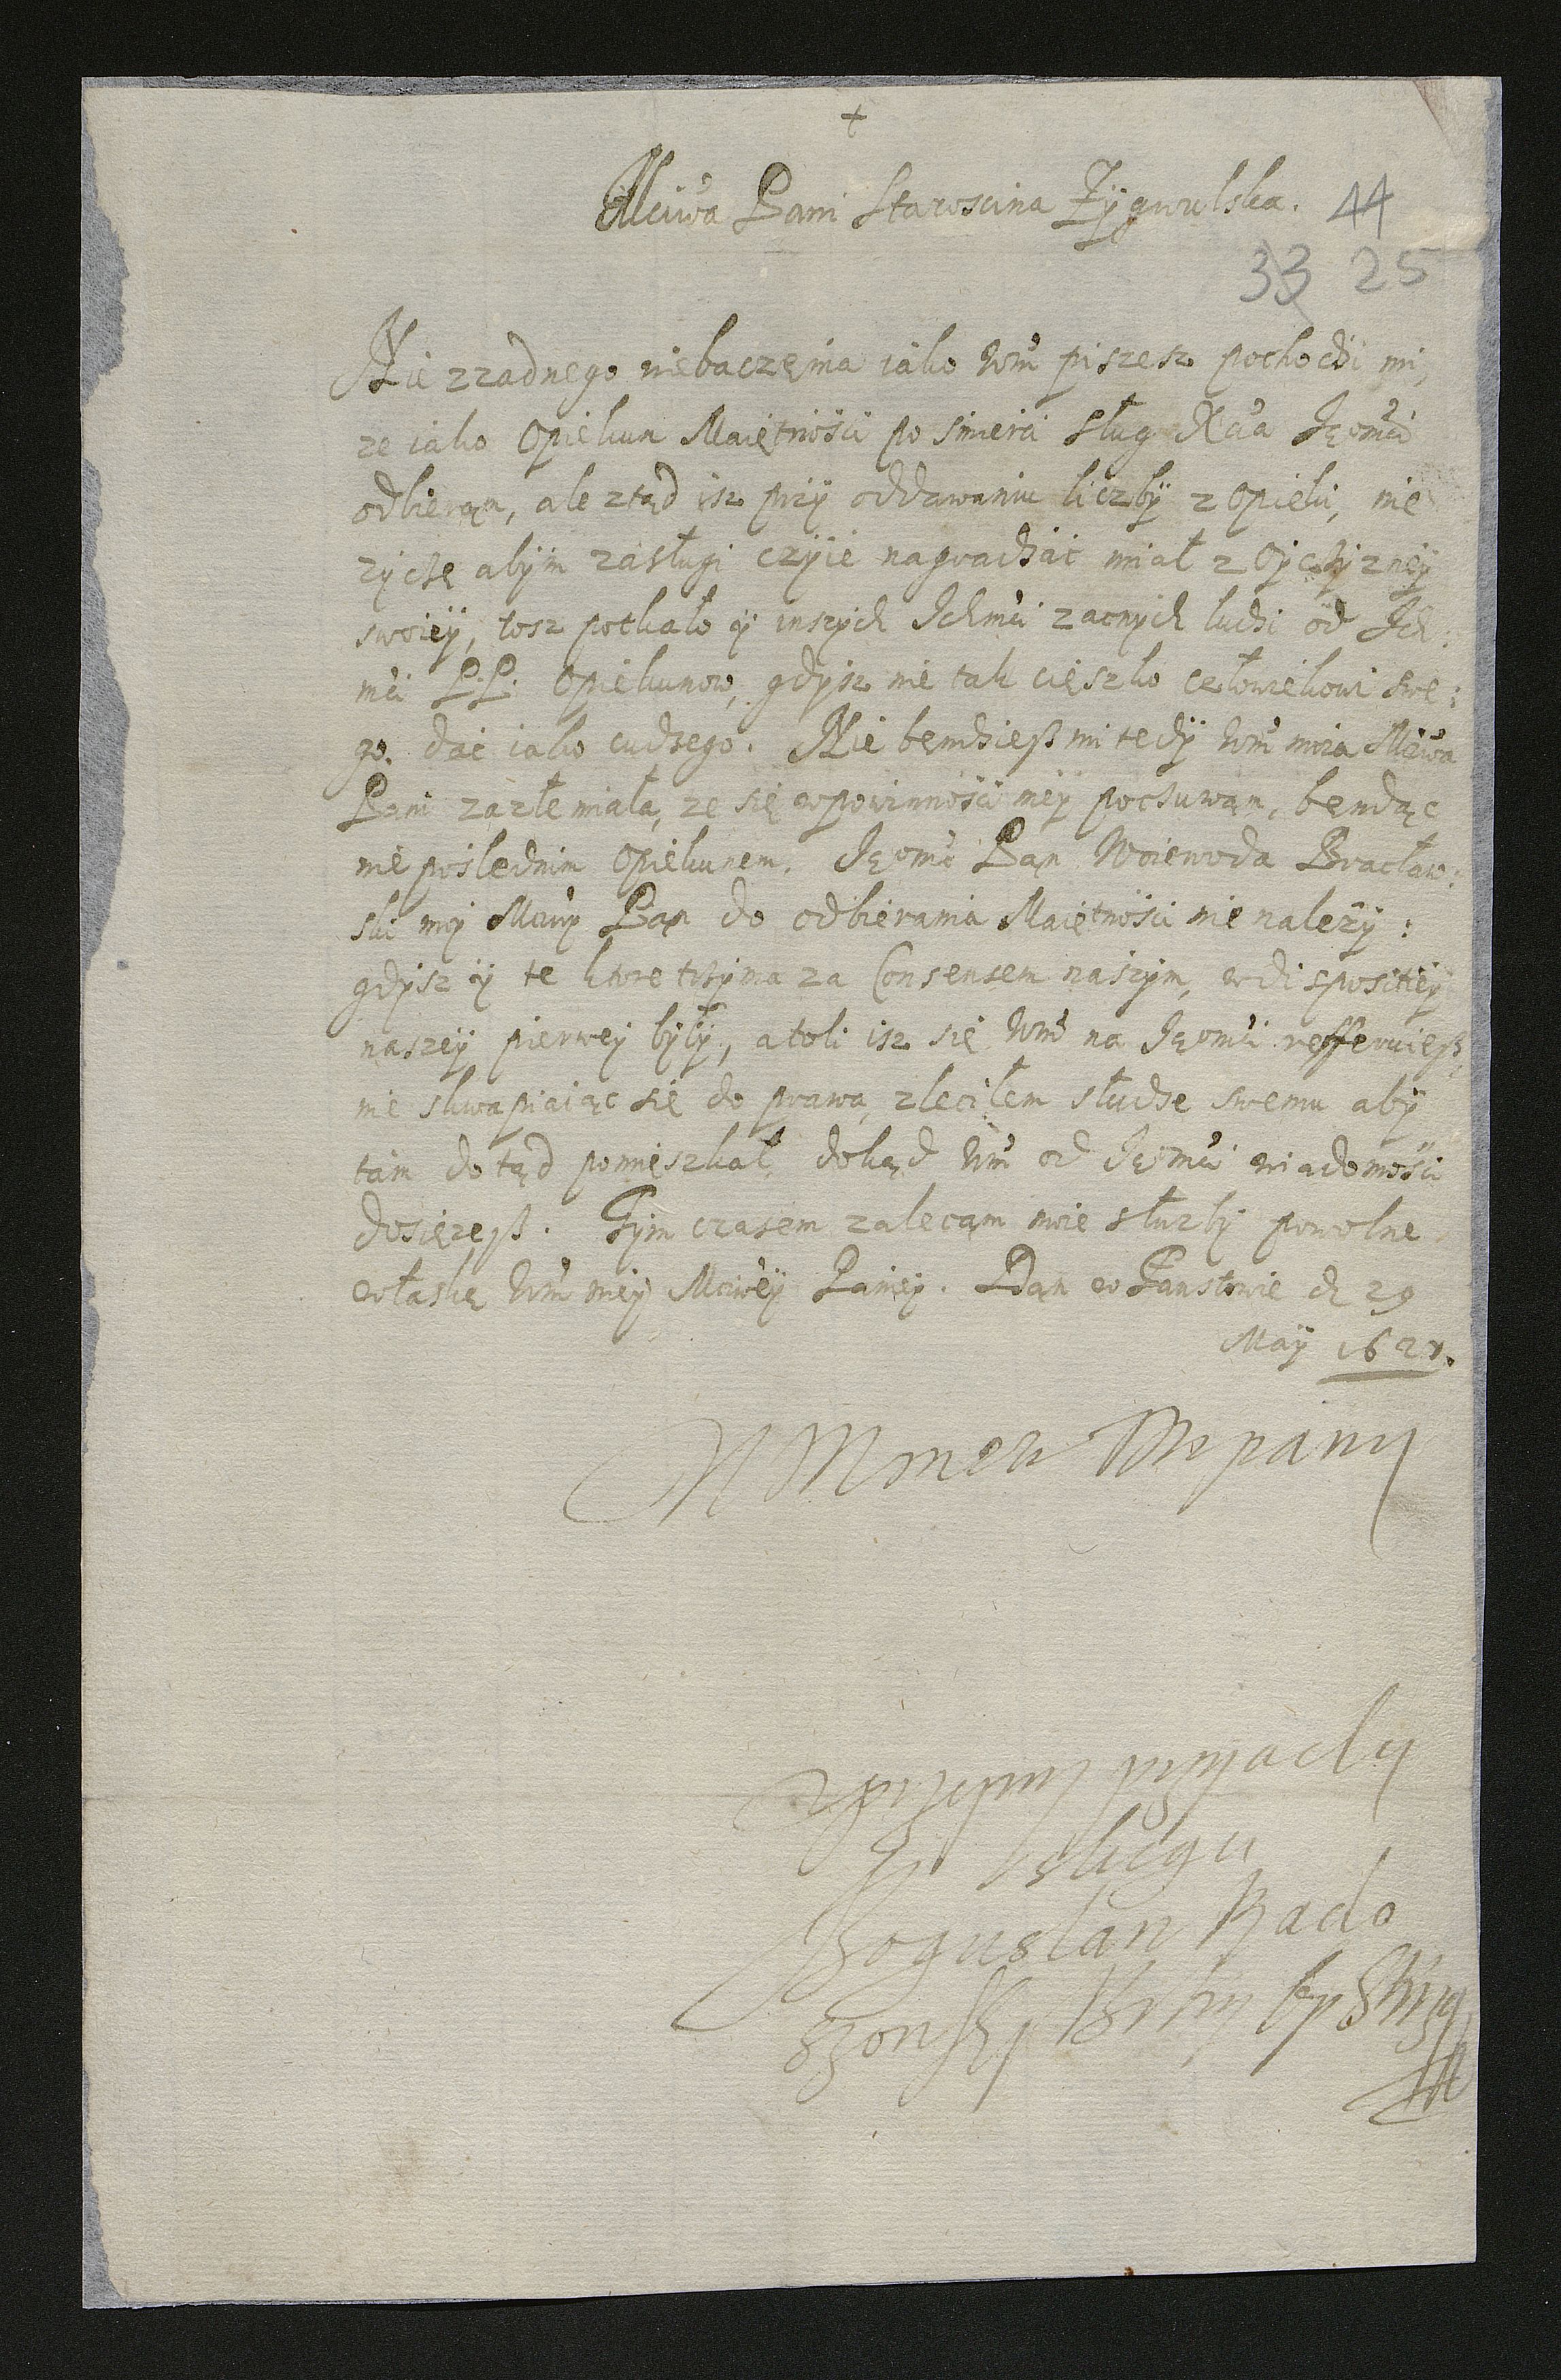 +
Mciwa Pani Staroscina Zÿgwulska. 44
33 25
Nie zzadnego niebaczęnia iako Wm̃ piszesz pochodzi mi,
ze iako Opiekun Maiętnósći po śmierci sług Xcia Jęomći
odbieram, ale ztąd isz przÿ oddawaniu liczbÿ z Opieki, nie
zÿczę abÿm zasługi czÿie nagradzać miał z Oÿczÿznÿ
swoiëÿ, tosz potkało ÿ inszÿch Ichmći zacnÿch ludzi od Ich:
mći P.P. Opiekunow, gdÿsz nie tak cięszko człowiekowi swe:
go. dać iako cudzego. Nie bęndzieß mi tedÿ Wm̃ moia Mćiwa
Pani zazłe miała, ze się wpowinnosći mëÿ poczuwam, bendąc
nie poslednim Opiekunem. Jęomć Pan Woiewoda Bracław:
ski moÿ Mciwÿ Pan do odbierania Maiętnosći nie nalezÿ:
gdÿsz ÿ te ktore trzÿma za Consensem naszÿm, w dispositiëÿ
naszëÿ pierweÿ bÿłÿ, atoli isz się Wm̃ na Jęomći refferuieß,
nie skwapiaiąc się do prawa, zleciłem słudze swemu abÿ
tam dotąd pomięszkał, dokąd Wm̃ od Jęomći wiadomosći
dosięzeß. Tÿm czasem zalecam moie słuzbÿ powolne
właskę Wm̃ mëÿ Mciwëÿ Paniëÿ. Dan w Pansłowie d 29
Maÿ 1621.
W M meÿ Mc panÿ
zÿczliwÿ przÿiaciel
ÿ sługa
Bogusław Rado
szowskÿ